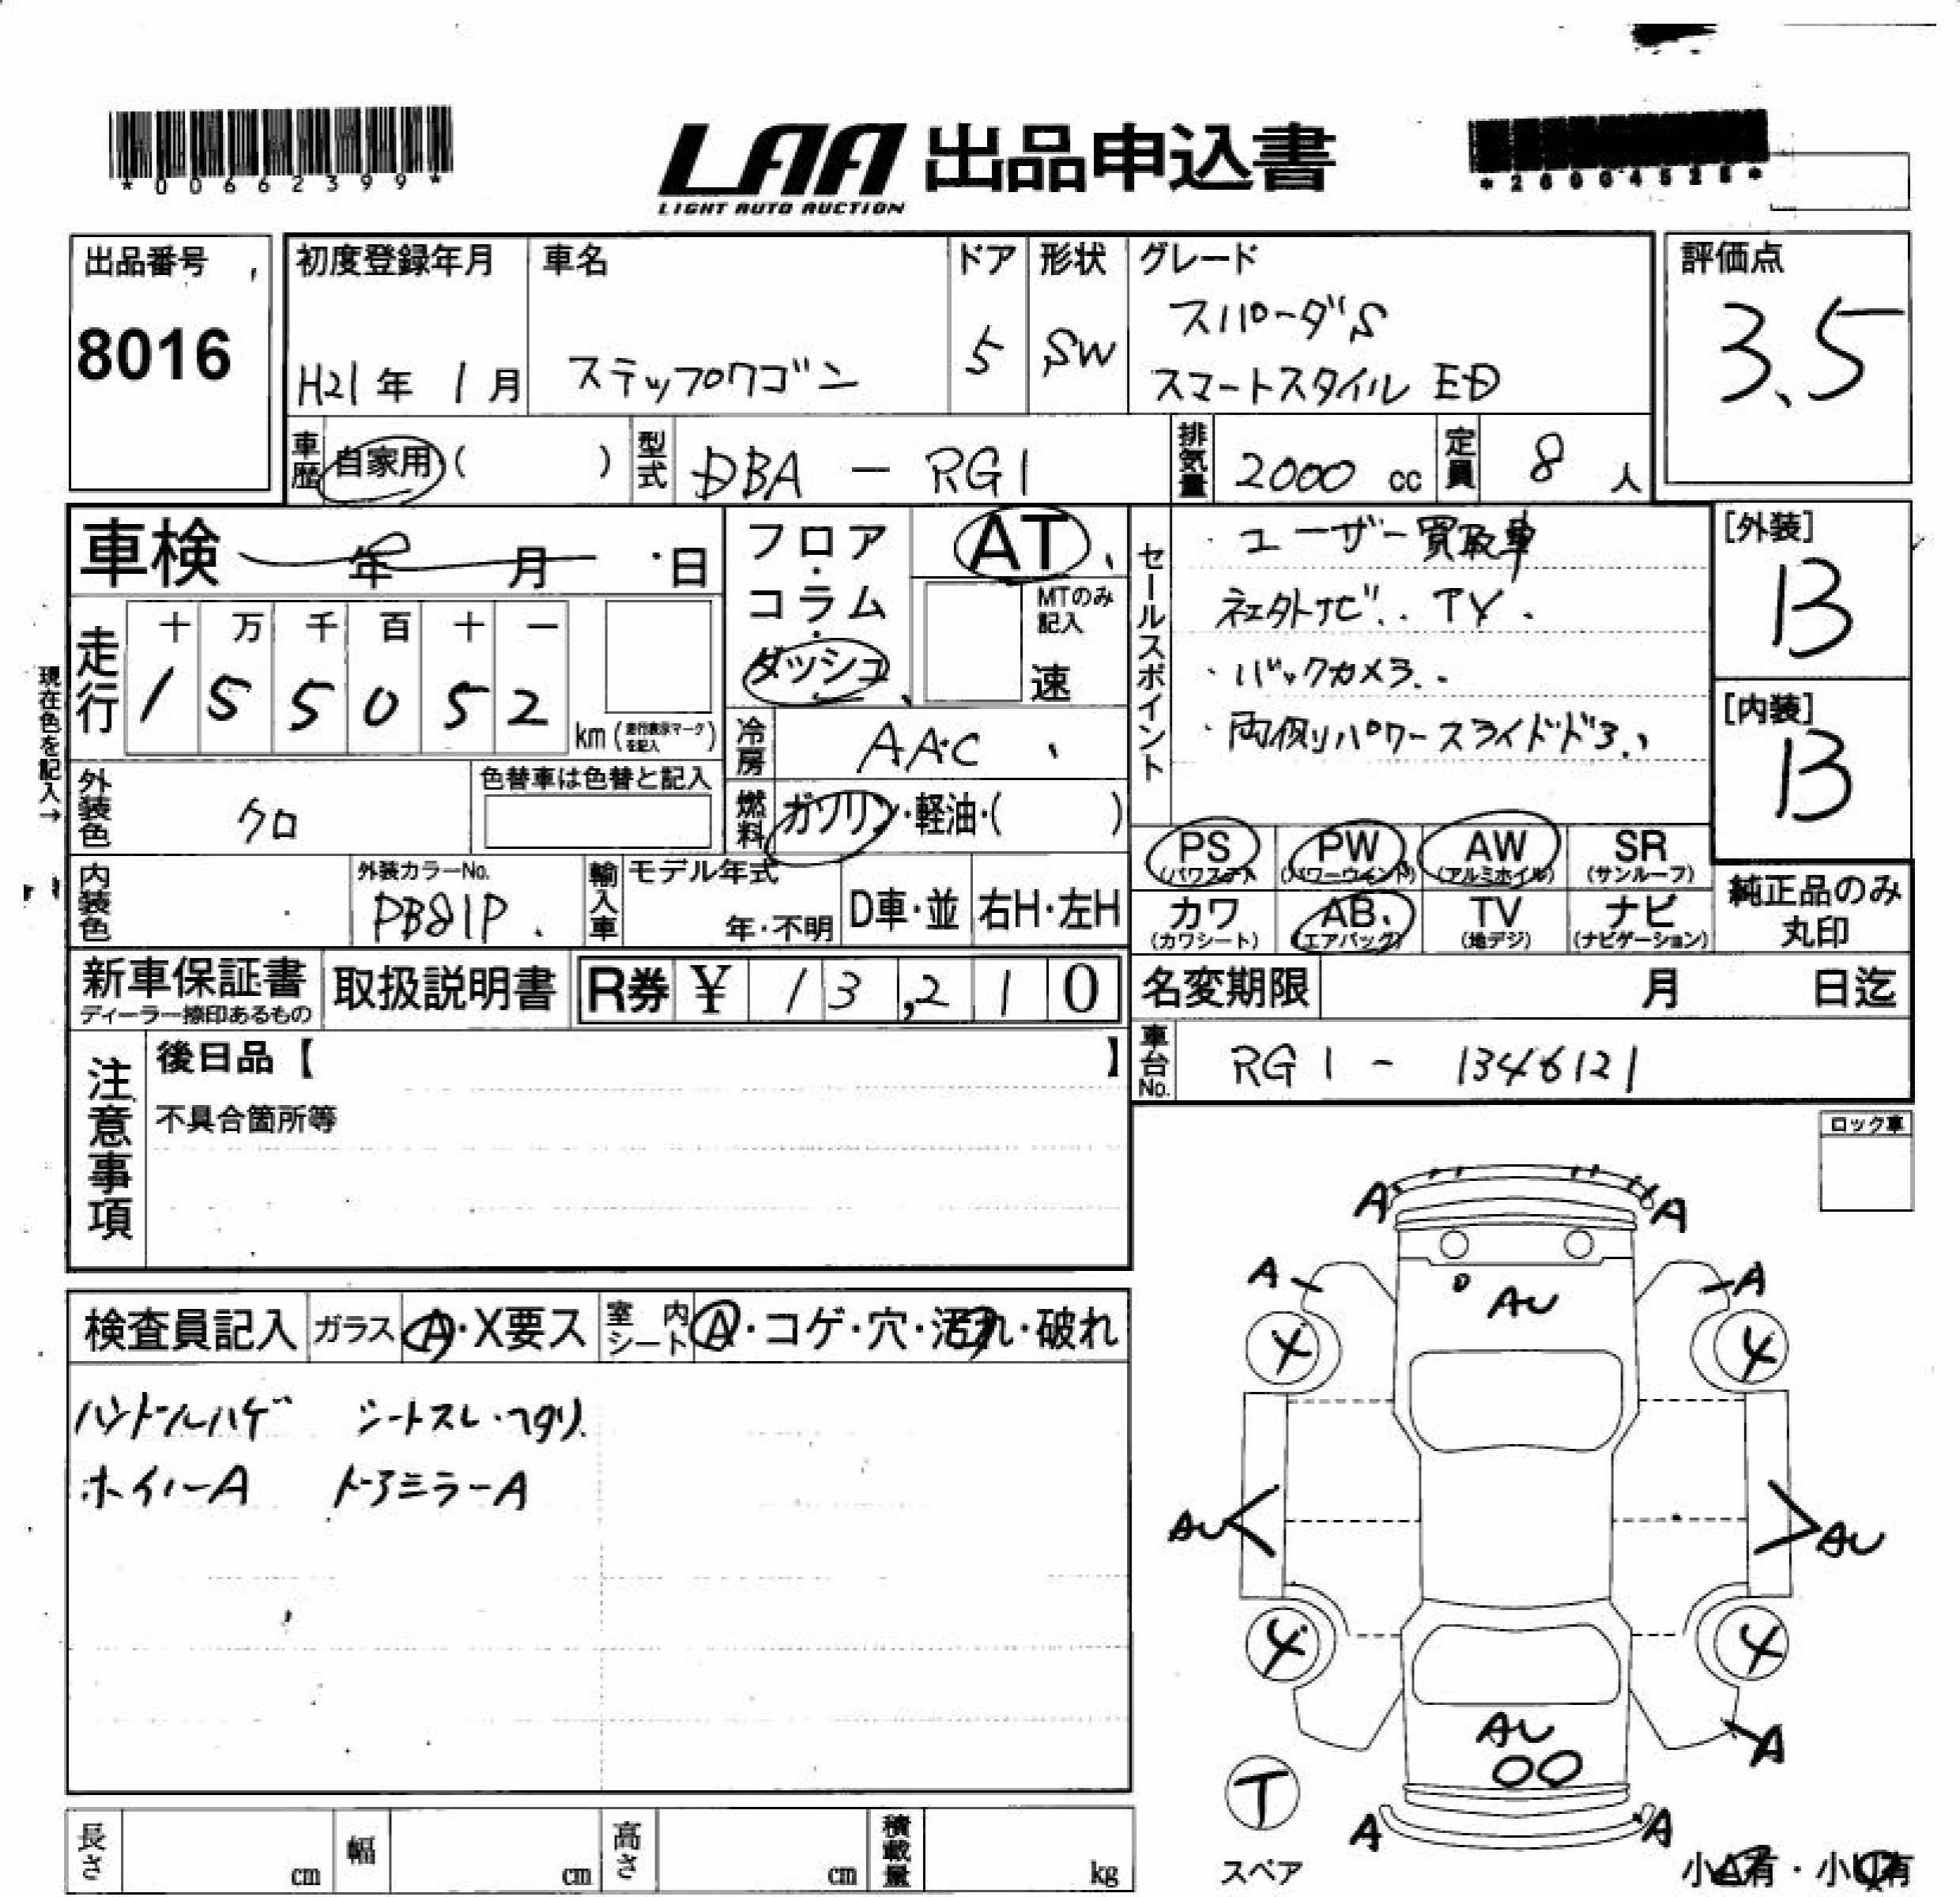 *00662399*
LAA 出品申込書
LIGHT AUTO AUCTION
出品番号
8016
初度登録年月
H21年 1月
車名
ステップワゴン
ドア
5
形状
SW
グレード
スパーダS
スマートスタイル ED
評価点
3.5
車歴 自家用 ( )
型式 DBA - RG1
排気量 2000 cc
定員 8 人
車検 年 月 日
フロア・コラム・ダッシュ
AT
MTのみ記入
速
セールスポイント
・ユーザー買取車
社外ナビ.. TV.
・バックカメラ..
・両側パワースライドドア.
[外装]
B
[内装]
B
現在色を記入→
走行
十 万 千 百 十 一
1 5 5 0 5 2 km (走行表示マークを記入)
冷房 AAC
燃料 ガソリン・軽油・( )
外装色 クロ
色替車は色替と記入
内装色
外装カラーNo.
PB81P
輸入車
モデル年式
年・不明
D車・並
右H・左H
PS (パワステ)
PW (パワーウィンド)
AW (アルミホイル)
SR (サンルーフ)
カワ (カワシート)
AB (エアバッグ)
TV (地デジ)
ナビ (ナビゲーション)
純正品のみ
丸印
新車保証書
ディーラー捺印あるもの
取扱説明書
R券 ¥ 13,210
名変期限 月 日迄
車台No. RG1 - 1346121
注意事項
後日品【 】
不具合箇所等
ロック車
検査員記入
ガラス A・X要ス
室内シート A・コゲ・穴・汚れ・破れ
ハンドルハゲ シートスレ・ヘタリ
ホイルーA ドアミラーA
A A
A A
AU
4 4
AU AU
4 4
AU
A
T
スペア
A A
小A有・小U有
長さ cm
幅 cm
高さ cm
積載量 kg